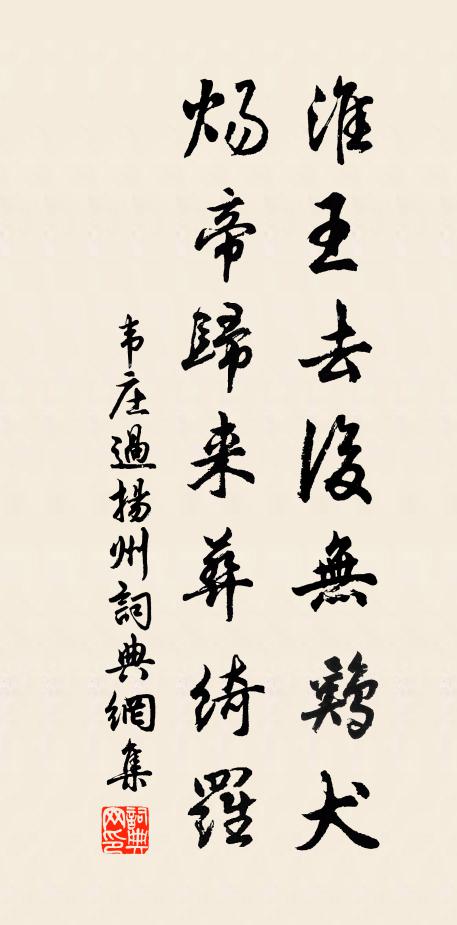 淮王去後無鷄犬
煬帝歸来葬綺羅
韦庄過揚州詞典網集
詞典网印